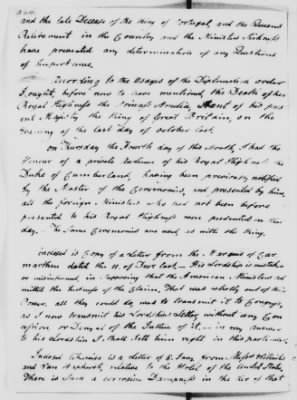 and the late Decease of the King of Portugal, and the Present
Retirement in the Country and the Ministers Sickness
have prevented any determination of any Questions
of importance.
According to the Usages of the Diplomatick order
I ought, before now to have mentioned, the Death of her
Royal Highness the Princess Amelia, Aunt of his pres
ent Majesty the King of Great Britain, on the
Evening of the last day of october last.
on Thursday the Fourth day of this Month, I had the
Honour of a private Audience of his Royal Highness the
Duke of Cumberland, having been previously notified
by the Master of the Ceremonies, and presented by him,
all the foreign Ministers who had not been before
presented to his Royal Highness were presented in that
day. The Same Ceremonies are used, as with the King.
inclosed is Copy of a letter from the Marquis of Car
marthen dated the 11. of Feb. last. His Lordship is mistaken
or misinformed, in supposing that the American Ministers ad
mitted the justness of the Claim. That was wholly out of their
Power. all they could do, was to transmit it to Congress,
as I now transmit his Lordships Letter without any Con
fession or Denial of the Justness of it. in my answer
to his Lordship I shall Sett him right in this particular.
Inclosed likewise is a Letter of 8. Jany from Messrs Willinks
and Van Staphorst, relative to the Hotel of the United States,
There is Such a corrosive Dampness in the Air of that